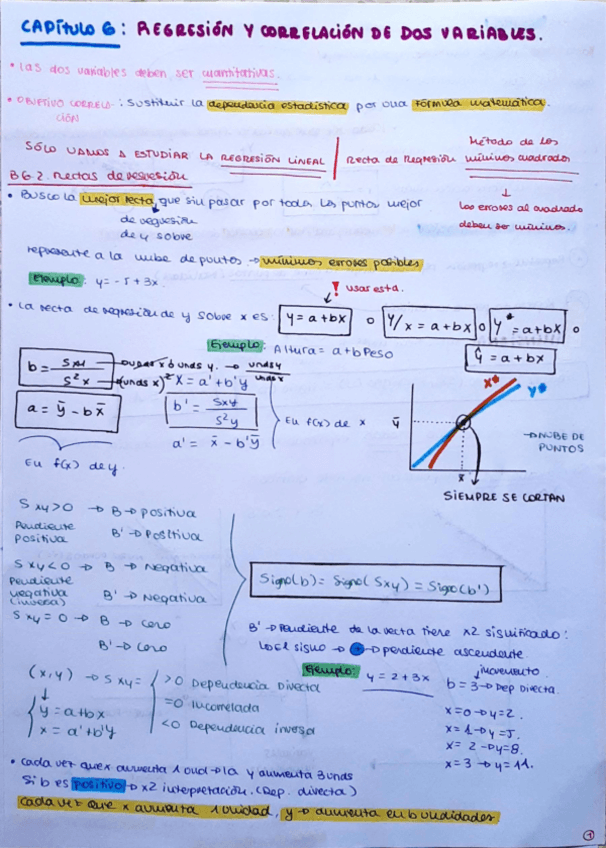 CAPÍTULO 6: REGRESIÓN Y CORRELACIÓN DE DOS VARIABLES.
• Las dos variables deben ser cuantitativas.
• OBJETIVO CORRELACIÓN: Sustituir la dependencia estadística por una fórmula matemática.
SÓLO VAMOS A ESTUDIAR LA REGRESIÓN LINEAL | Recta de Regresión
Método de los mínimos cuadrados
↓
Los errores al cuadrado deben ser mínimos.
B6.2. Rectas de regresión
• Busco la mejor recta, que sin pasar por todos los puntos mejor
de regresión
de y sobre
represente a la nube de puntos → mínimos errores posibles
Ejemplo: y = -5 + 3x.
! usar esta.
• La recta de regresión de y sobre x es: y = a + bx o y/x = a + bx o y* = a + bx o
ŷ = a + bx
Ejemplo: Altura = a + b Peso
b = Sxy / S²x
(unds x)²
unds y / unds x
x = a' + b'y
a = ȳ - b x̄
b' = Sxy / S²y
a' = x̄ - b'ȳ
En f(x) de x
En f(x) de y.
x*
y*
ȳ
x̄
→ NUBE DE PUNTOS
SIEMPRE SE CORTAN
Sxy > 0 → B → positiva
Pendiente positiva B' → Positiva
Sxy < 0 → B → Negativa
Pendiente negativa (inversa) B' → Negativa
Sxy = 0 → B → Cero
B' → Cero
Signo(b) = Signo(Sxy) = Signo(b')
B' → Pendiente de la recta tiene x2 significado:
↳ El signo → + → pendiente ascendente.
Ejemplo: y = 2 + 3x
b = 3 → Dep Directa.
x = 0 → y = 2.
x = 1 → y = 5.
x = 2 → y = 8.
x = 3 → y = 11.
(x,y) → Sxy = > 0 Dependencia Directa
= 0 Incorrelada
< 0 Dependencia inversa
↓
y = a + bx
x = a' + b'y
• Cada vez que x aumenta 1 und → la y aumenta 3 unds
Si b es positivo → x2 interpretación. (Dep. directa)
Cada vez que x aumenta 1 unidad, y → aumenta en b unidades
1